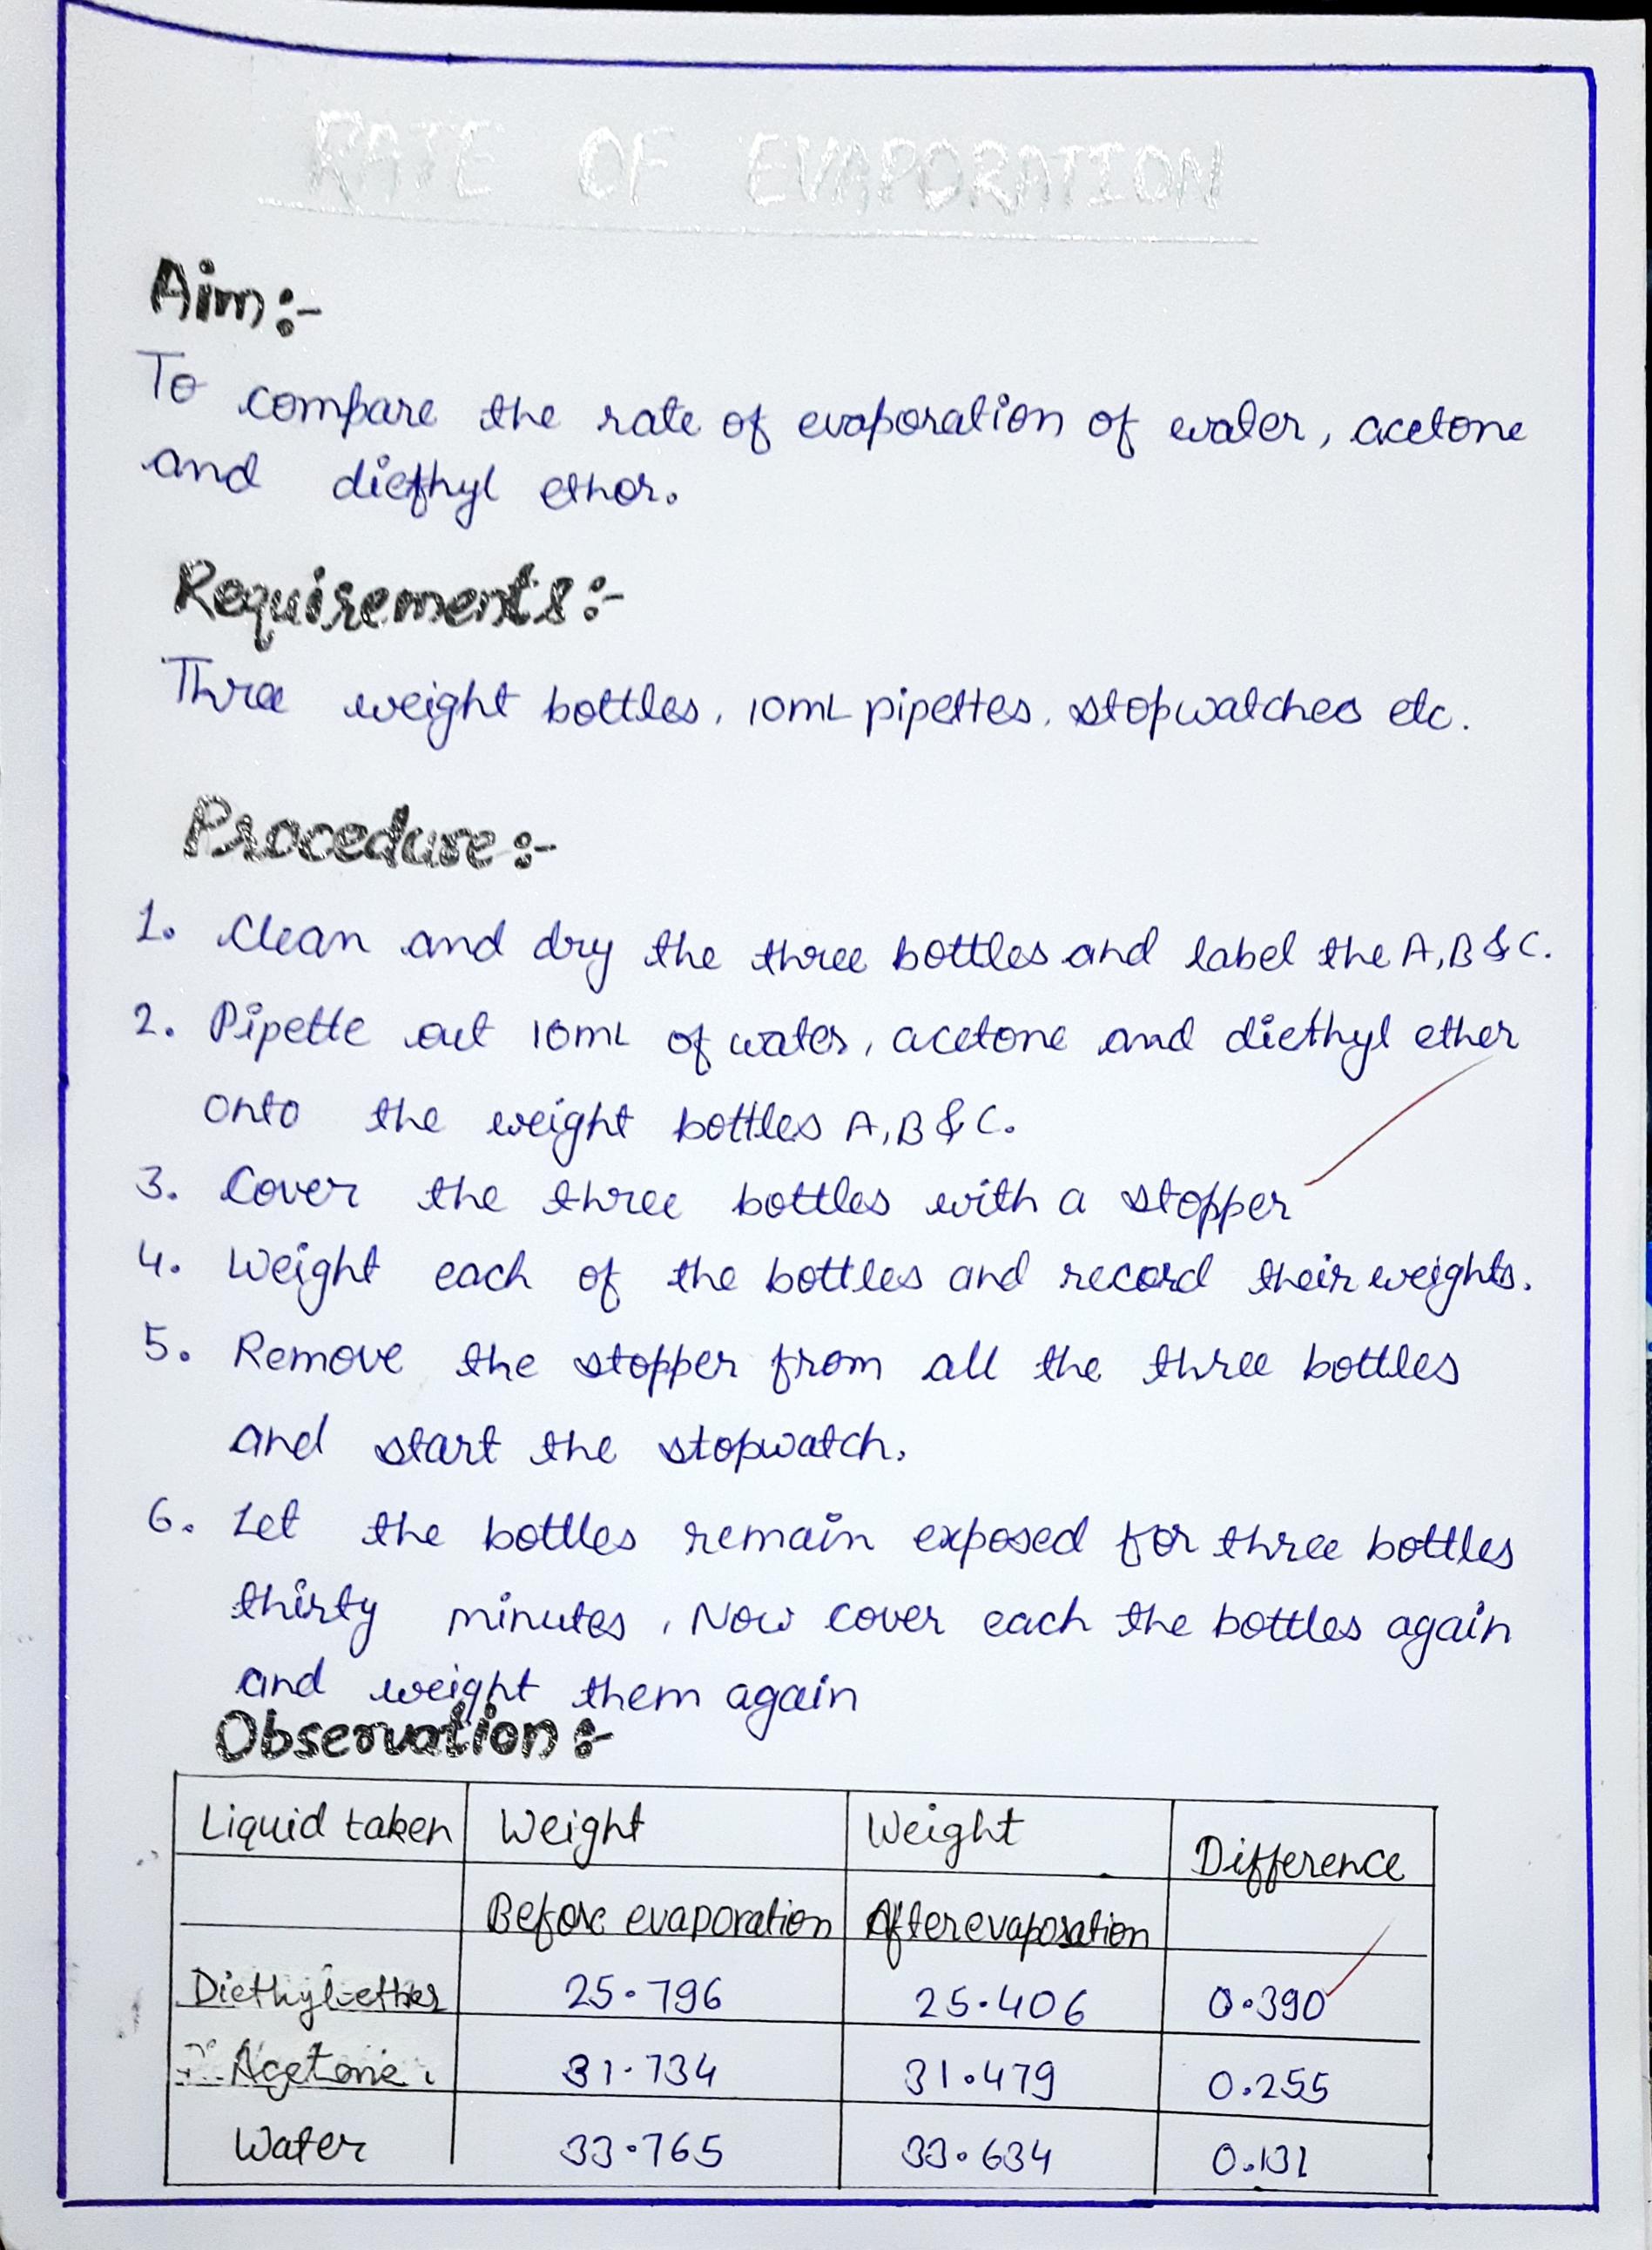 RATE OF EVAPORATION
Aim:-
To compare the rate of evaporation of water, acetone
and diethyl ether.
Requirements:-
Three weight bottles, 10mL pipettes, stopwatches etc.
Procedure:-
1. Clean and dry the three bottles and label the A,B & C.
2. Pipette out 10mL of water, acetone and diethyl ether
onto the weight bottles A,B & C.
3. Cover the three bottles with a stopper
4. Weight each of the bottles and record their weights.
5. Remove the stopper from all the three bottles
and start the stopwatch.
6. Let the bottles remain exposed for three bottles
thirty minutes. Now cover each the bottles again
and weight them again
Observation:-
Liquid taken Weight Weight Difference
Before evaporation After evaporation
Diethyl ether 25.796 25.406 0.390
Acetone 31.734 31.479 0.255
Water 33.765 33.634 0.131